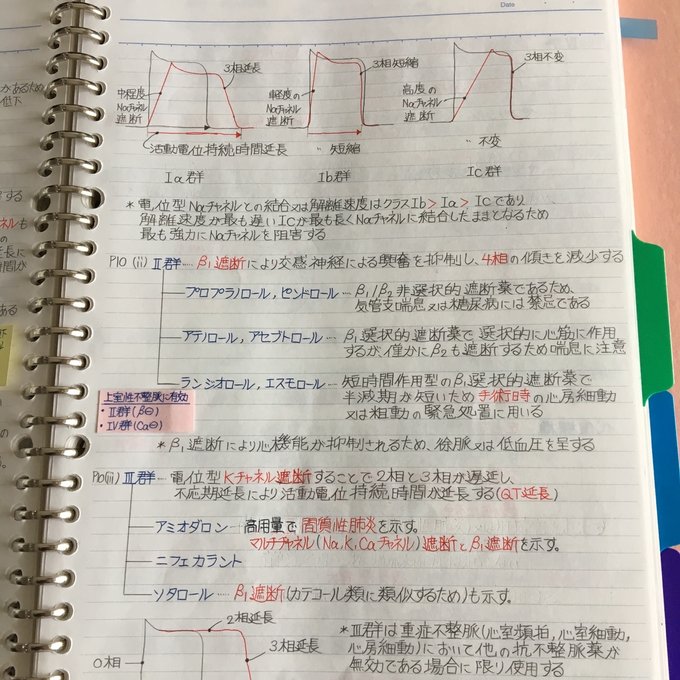 Date
3相延長
3相短縮
3相不変
中程度
Naチャネル
遮断
軽度の
Naチャネル
遮断
高度の
Naチャネル
遮断
活動電位持続時間延長
〃 短縮
〃 不変
Ia群
Ib群
Ic群
* 電位型Naチャネルとの結合又は解離速度はクラスIb > Ia > Icであり
解離速度が最も遅いIcが最も長くNaチャネルに結合したままとなるため
最も強力にNaチャネルを阻害する
P10 (ii) Ⅱ群… β1遮断により交感神経による興奮を抑制し、4相の傾きを減少する
プロプラノロール, ピンドロール… β1/β2非選択的遮断薬であるため、
気管支喘息又は糖尿病には禁忌である
アテノロール, アセブトロール… β1選択的遮断薬で選択的に心筋に作用
するが僅かにβ2も遮断するため喘息に注意
ランジオロール, エスモロール… 短時間作用型のβ1選択的遮断薬で
半減期が短いため手術時の心房細動
又は粗動の緊急処置に用いる
上室性不整脈に有効
・Ⅱ群(β⊖)
・Ⅳ群(Ca⊖)
* β1遮断により心機能が抑制されるため、徐脈又は低血圧を呈する
P10(iii) Ⅲ群… 電位型Kチャネル遮断することで2相と3相が遅延し、
不応期延長により活動電位持続時間が延長する(QT延長)
アミオダロン… 高用量で間質性肺炎を示す。
マルチチャネル(Na,K,Caチャネル)遮断とβ1遮断を示す。
ニフェカラント
ソタロール… β1遮断(カテコール類に類似するため)も示す。
2相延長
3相延長
0相
* Ⅲ群は重症不整脈(心室頻拍,心室細動,
心房細動)において他の抗不整脈薬が
無効である場合に限り使用する